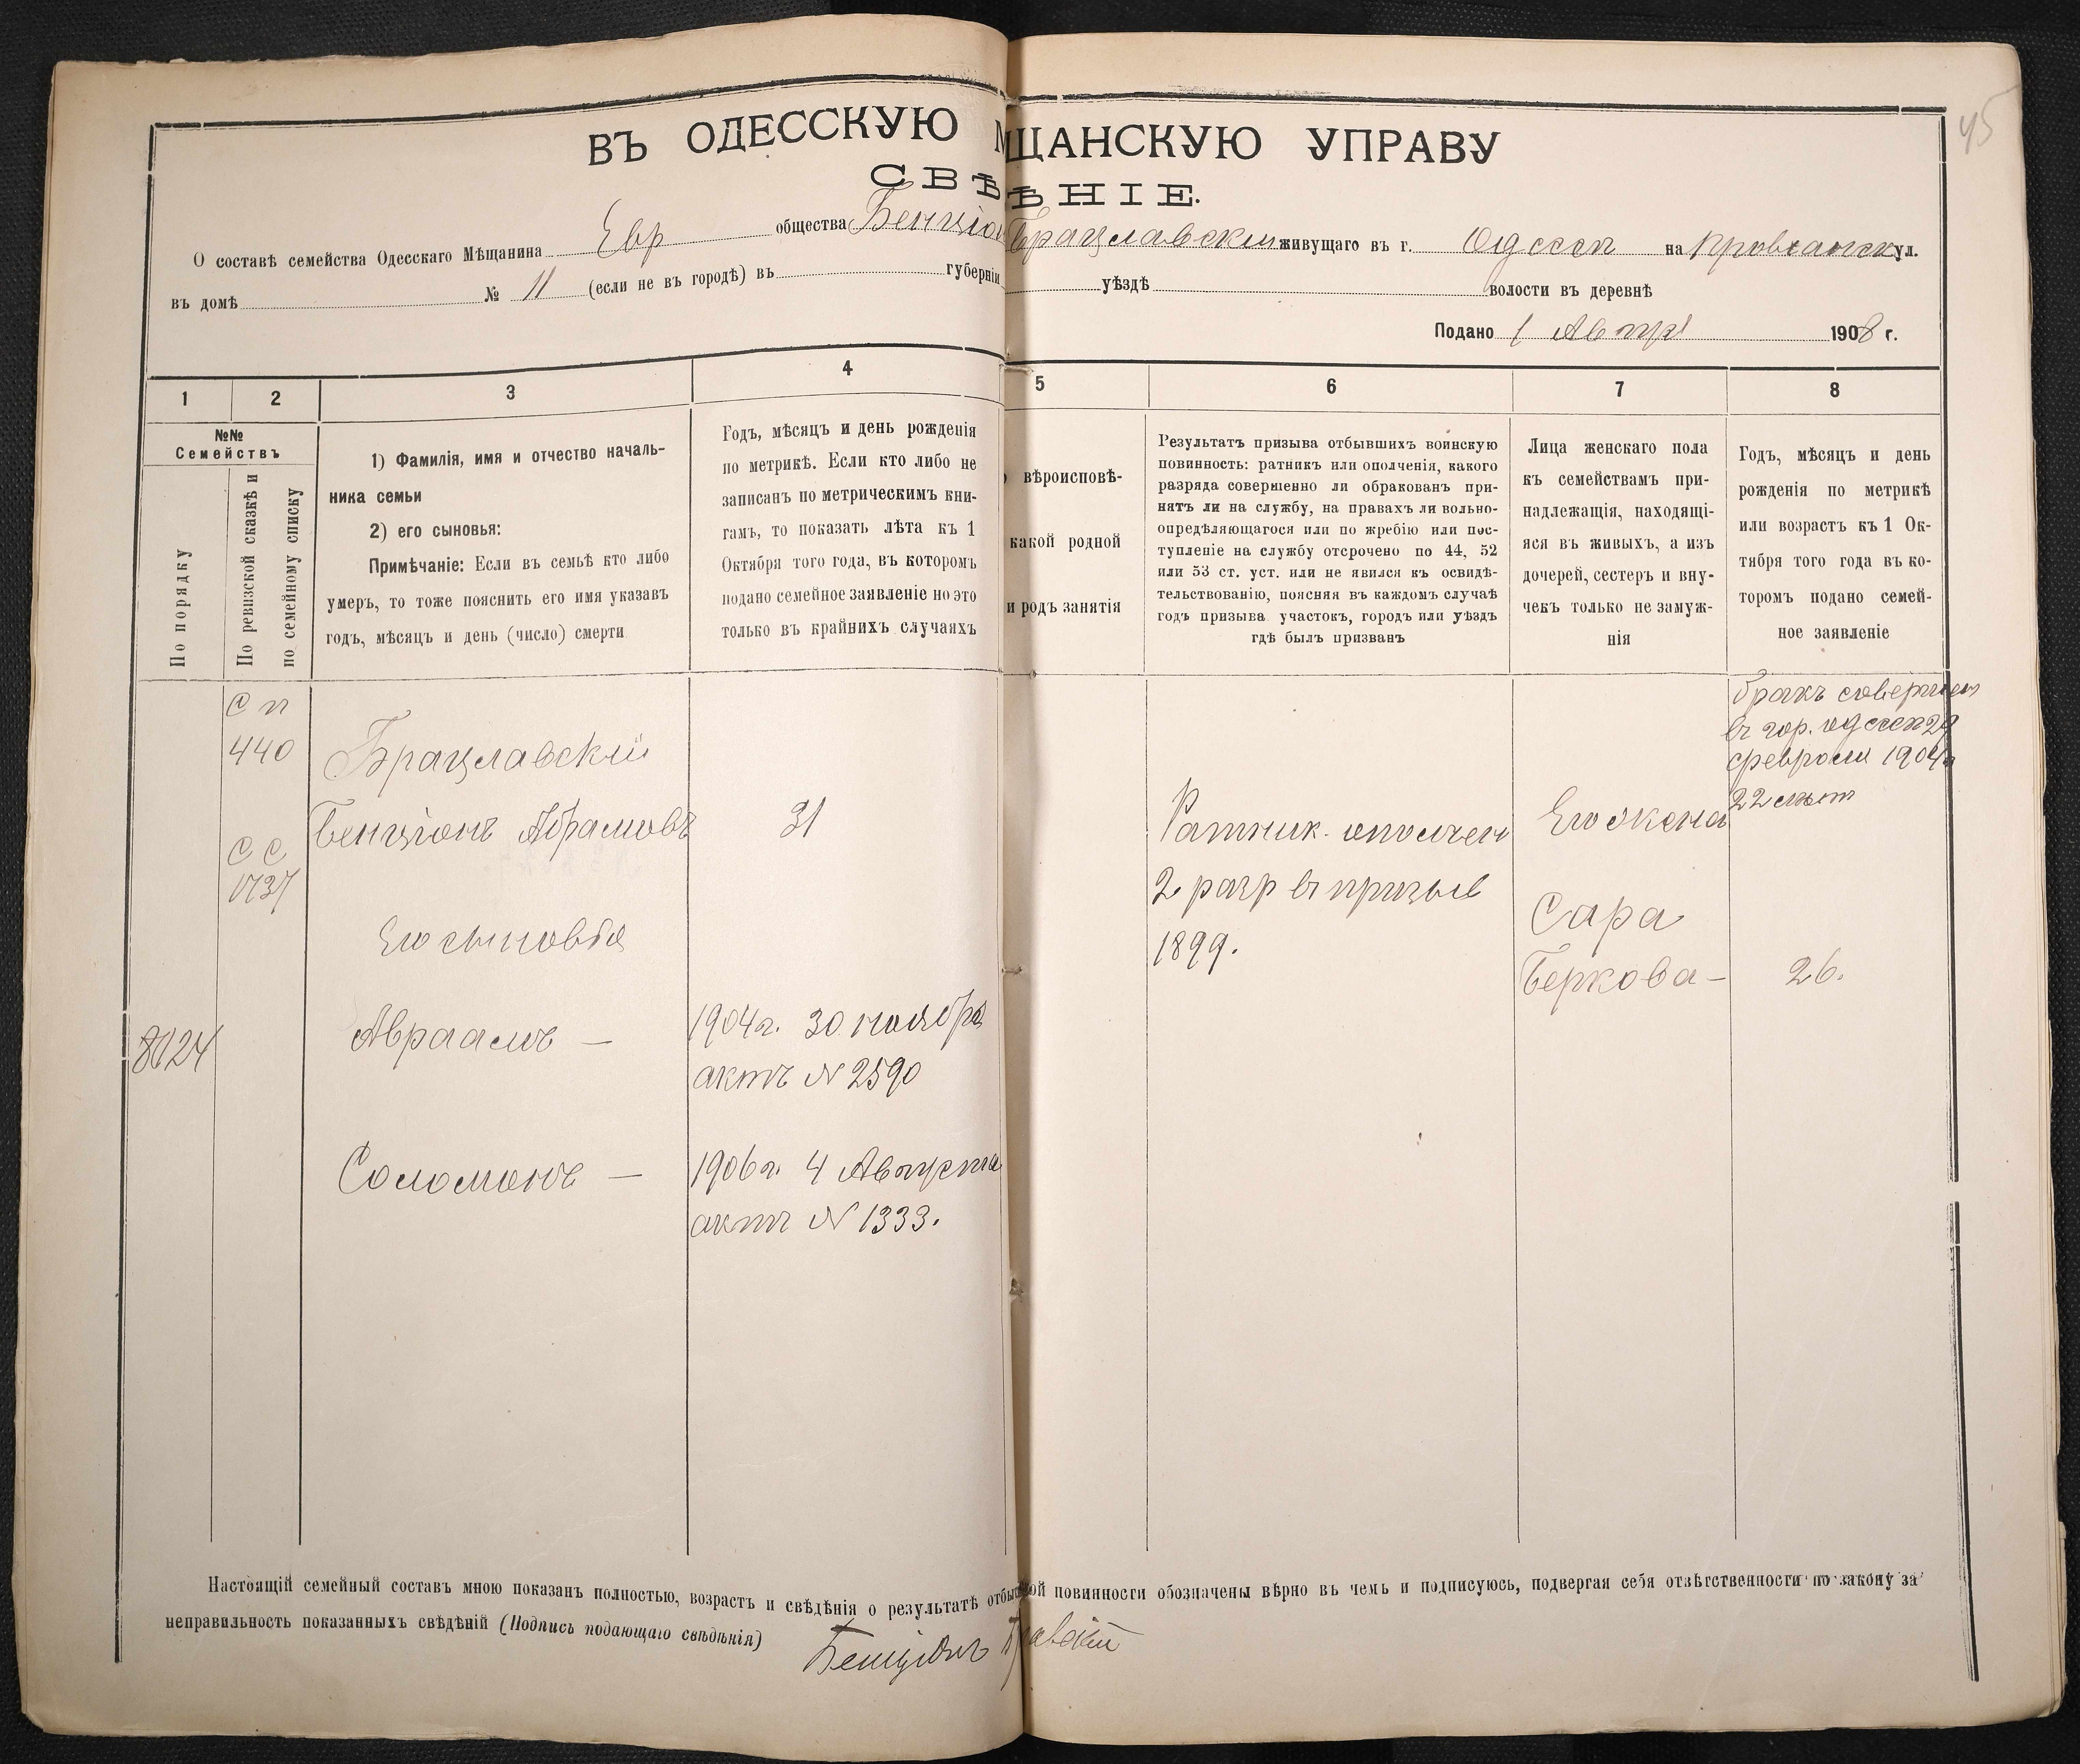 45
ВЪ ОДЕССКУЮ М ЩАНСКУЮ УПРАВУ
СВѢ ѢНІЕ.
О составѣ семейства Одесскаго Мѣщанина Евр общества Бенціон Брацлавскій живущаго въ г. Одессѣ на ул.
въ домѣ № 11 (если не въ городѣ) въ губерніи уѣздѣ волости въ деревнѣ
Подано 1 1908 г.
1 2 3 4 5 6 7 8
№№
Семействъ
По порядку
По ревизской сказкѣ и
по семейному списку
1) Фамилія, имя и отчество началь-
ника семьи
2) его сыновья:
Примѣчаніе: Если въ семьѣ кто либо
умеръ, то тоже пояснить его имя указавъ
годъ, мѣсяцъ и день (число) смерти
Годъ, мѣсяцъ и день рожденія
по метрикѣ. Если кто либо не
записанъ по метрическимъ кни-
гамъ, то показать лѣта къ 1
Октября того года, въ которомъ
подано семейное заявленіе но это
только въ крайнихъ случаяхъ
вѣроисповѣ-
какой родной
и родъ занятія
Результатъ призыва отбывшихъ воинскую
повинность: ратникъ или ополченія, какого
разряда совершенно ли обракованъ при-
нятъ ли на службу, на правахъ ли вольно-
опредѣляющагося или по жребію или пос-
тупленіе на службу отсрочено по 44, 52
или 53 ст. уст. или не явился къ освидѣ-
тельствованію, поясняя въ каждомъ случаѣ
годъ призыва участокъ, городъ или уѣздъ
гдѣ былъ призванъ
Лица женскаго пола
къ семействамъ при-
надлежащія, находящі-
яся въ живыхъ, а изъ
дочерей, сестеръ и вну-
чекъ только не замуж-
нія
Годъ, мѣсяцъ и день
рожденія по метрикѣ
или возрастъ къ 1 Ок-
тября того года въ ко-
торомъ подано семей-
ное заявленіе
С п
440
С С
1737
8024
Брацлавскій
Бенціонъ Абрамовъ
Его сыновья
Авраамъ —
Соломонъ —
31
1904г. 30 ноября
актъ № 2590
1906г. 4 Августа
актъ № 1333.
Ратник. ополчен
2 разр въ призыв
1899.
Его жена
Сара
Беркова —
бракъ совершен
въ гор. Одессѣ 29
февраля 1904г
22 лѣт
26.
Настоящій семейный составъ мною показанъ полностью, возрастъ и свѣдѣнія о результатѣ отбы ой повинности обозначены вѣрно въ чемъ и подписуюсь, подвергая себя отвѣтственности по закону за
неправильность показанныхъ свѣдѣній (Подпись подающаго свѣдѣнія) Бенціонъ Б авскій